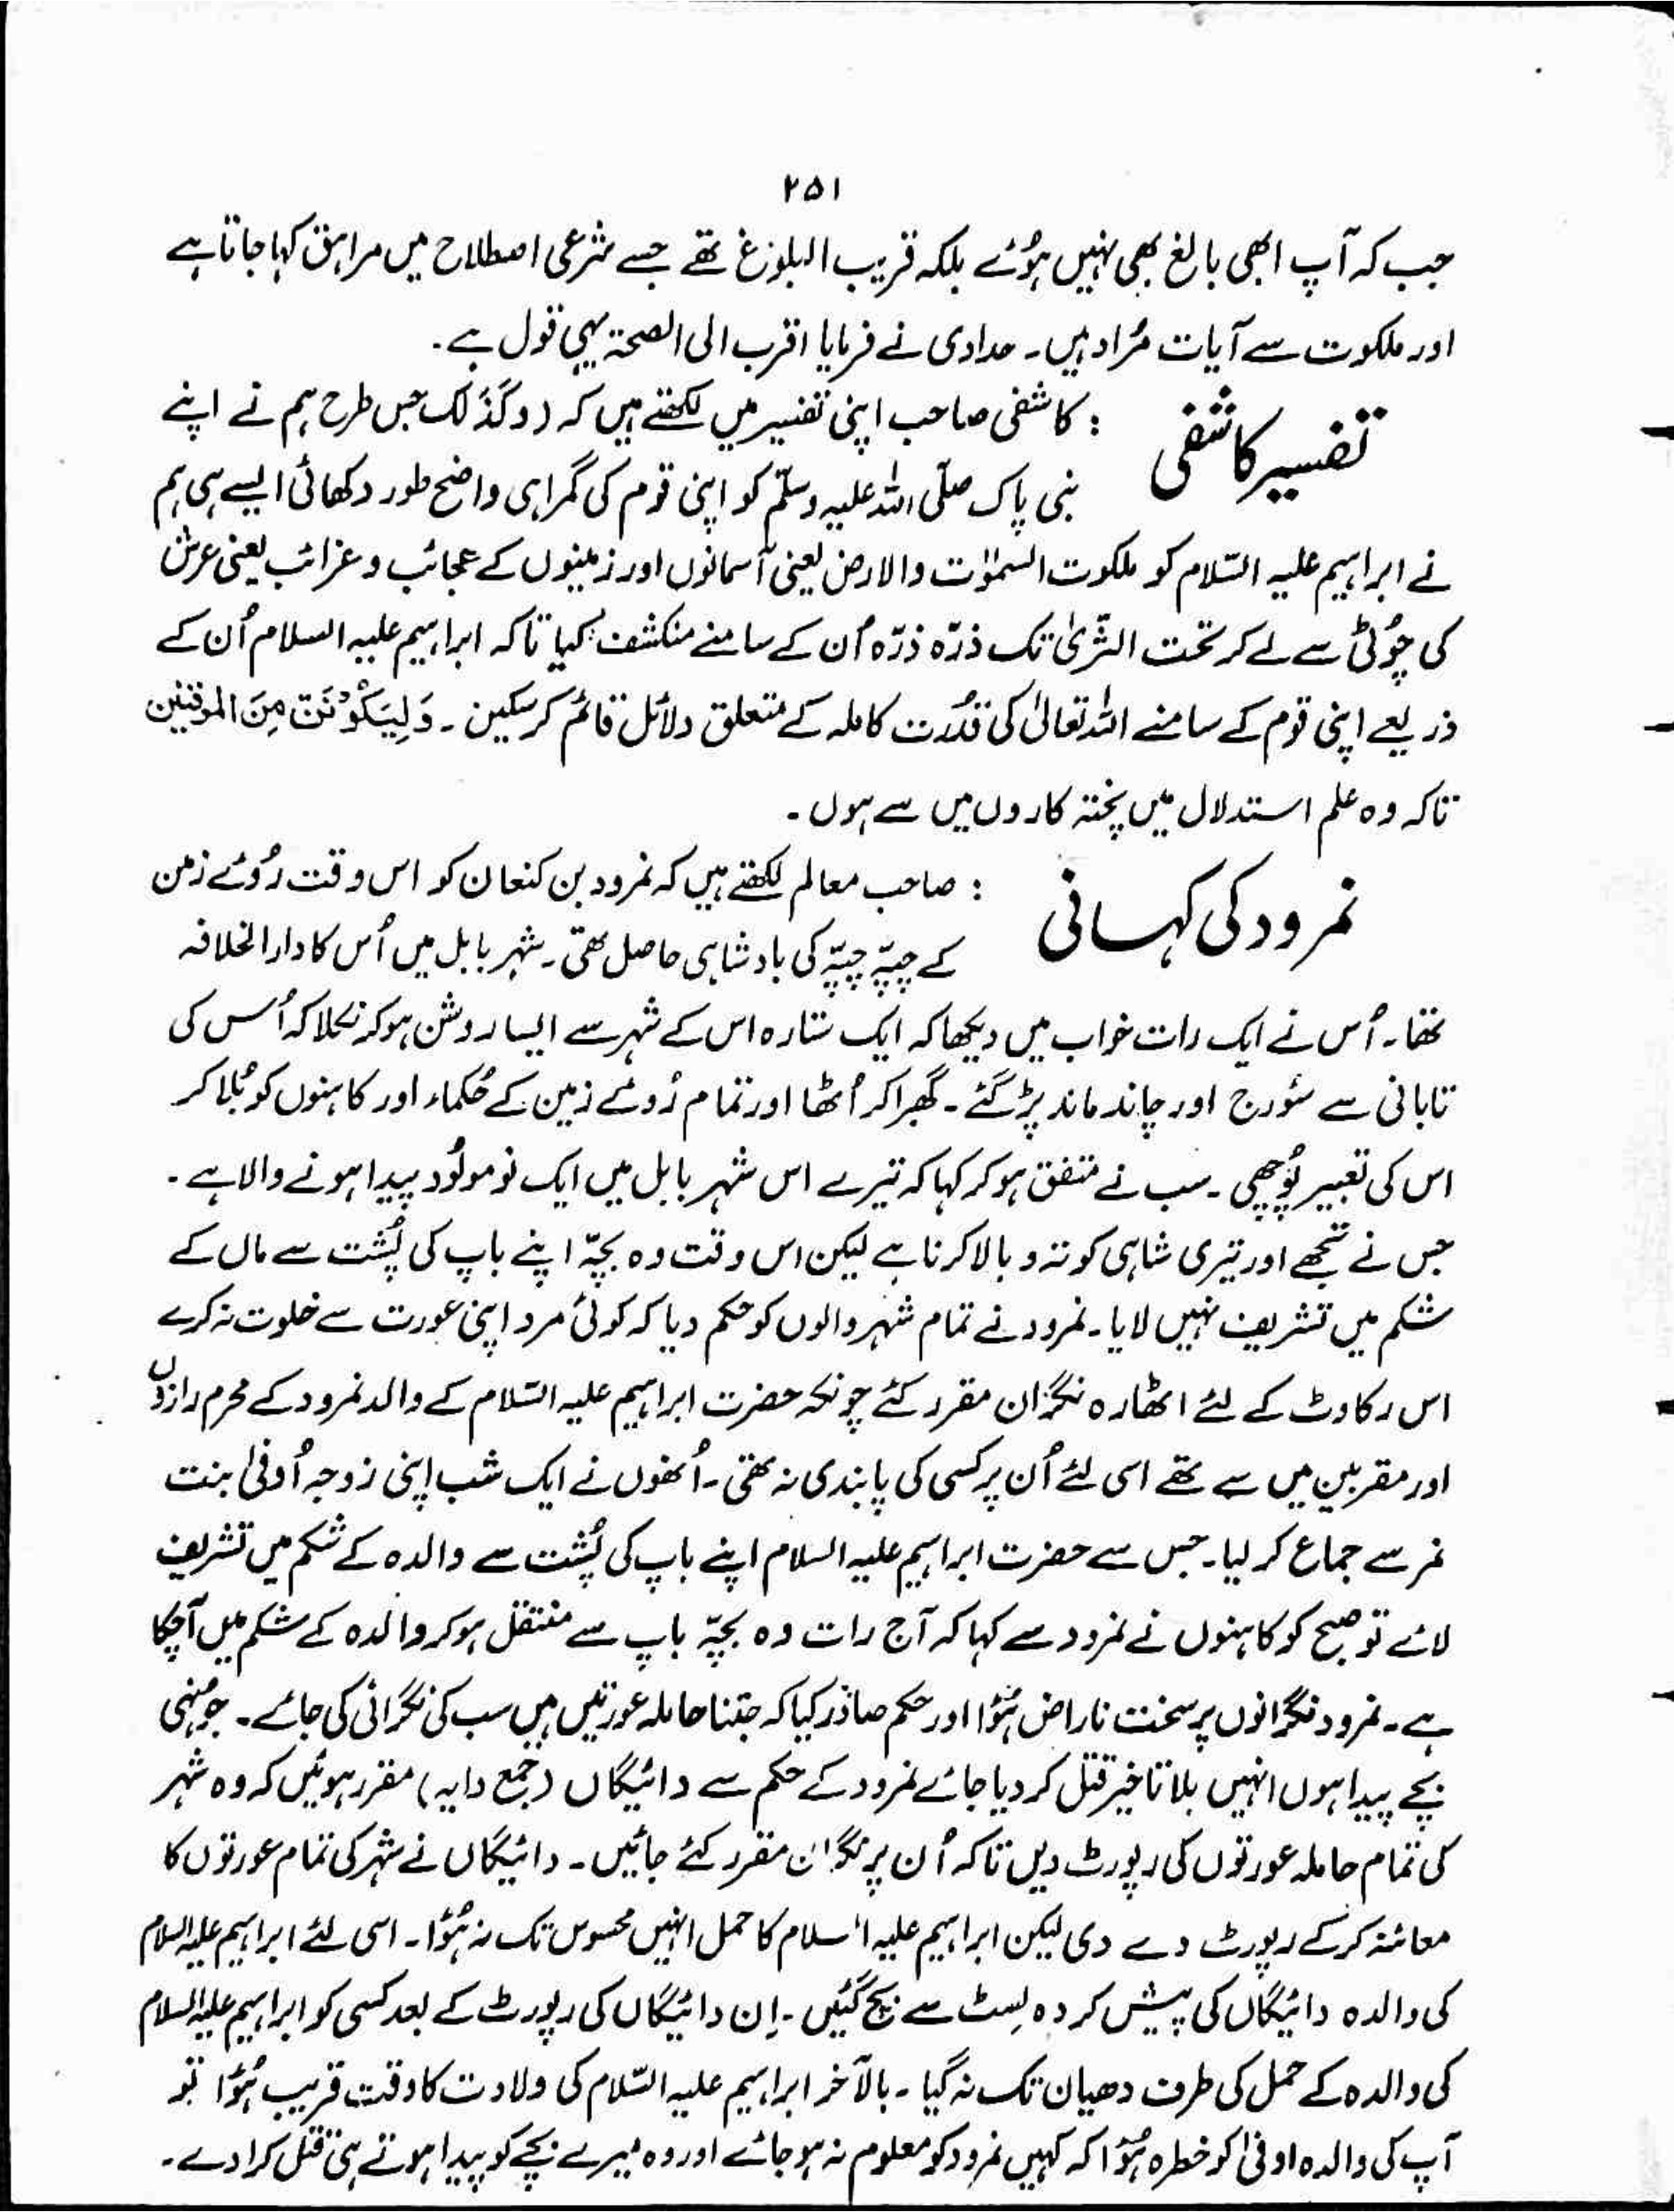 ۲۵۱
جب کہ آپ ابھی بالغ بھی نہیں ہُوئے بلکہ قریب البلوغ تھے جسے شرعی اصطلاح میں مراہق کہا جاتا ہے
اور ملکوت سے آیات مُراد ہیں۔ حدادی نے فرمایا اقرب الی الصحۃ یہی قول ہے۔
تفسیر کاشفی : کاشفی صاحب اپنی تفسیر میں لکھتے ہیں کہ (وکَذٰلک جس طرح ہم نے اپنے
نبی پاک صلّی اللہ علیہ وسلّم کو اپنی قوم کی گمراہی واضح طور دکھائی ایسے ہی ہم
نے ابراہیم علیہ السّلام کو ملکوت السمٰوٰت والارض یعنی آسمانوں اور زمینوں کے عجائب و غرائب یعنی عرش
کی چُوٹی سے لے کر تحت الثّریٰ تک ذرّہ ذرّہ اُن کے سامنے منکشف کیا تاکہ ابراہیم علیہ السلام اُن کے
ذریعے اپنی قوم کے سامنے اللہ تعالیٰ کی قدُرت کاملہ کے متعلق دلائل قائم کر سکیں۔ وَلِیَکُوْنَ مِنَ الموقنین
تاکہ وہ علم استدلال میں پختہ کاروں میں سے ہوں۔
نمرود کی کہانی : صاحب معالم لکھتے ہیں کہ نمرود بن کنعان کو اس وقت رُوئے زمن
کے چپّہ چپّہ کی بادشاہی حاصل تھی۔ شہر بابل میں اُس کا دارالخلافہ
تھا۔ اُس نے ایک رات خواب میں دیکھا کہ ایک ستارہ اس کے شہر سے ایسا روشن ہو کر نکلا کہ اُس کی
تابانی سے سُورج اور چاند ماند پڑ گئے۔ گھبرا کر اُٹھا اور تمام رُوئے زمین کے حُکماء اور کاہنوں کو بُلا کر
اس کی تعبیر پُوچھی۔ سب نے متفق ہو کر کہا کہ تیرے اس شہر بابل میں ایک نومولُود پیدا ہونے والا ہے۔
جس نے تجھے اور تیری شاہی کو تہ و بالا کرنا ہے لیکن اس وقت وہ بچّہ اپنے باپ کی پُشت سے ماں کے
شکم میں تشریف نہیں لایا۔ نمرود نے تمام شہر والوں کو حکم دیا کہ کوئی مرد اپنی عورت سے خلوت نہ کرے
اس رکاوٹ کے لئے اٹھارہ نگران مقرر کئے چونکہ حضرت ابراہیم علیہ السّلام کے والد نمرود کے محرم رازوں
اور مقربین میں سے تھے اسی لئے اُن پر کسی کی پابندی نہ تھی۔ اُنھوں نے ایک شب اپنی زوجہ اُوفیٰ بنت
نمر سے جماع کر لیا۔ جس سے حضرت ابراہیم علیہ السلام اپنے باپ کی پُشت سے والدہ کے شکم میں تشریف
لائے تو صبح کو کاہنوں نے نمرود سے کہا کہ آج رات وہ بچّہ باپ سے منتقل ہو کر والدہ کے شکم میں آچکا
ہے۔ نمرود نگرانوں پر سخت ناراض ہُؤا اور حکم صادر کیا کہ جتنا حاملہ عورتیں ہیں سب کی نگرانی کی جائے۔ جُونہی
بچے پیدا ہوں انہیں بلا تاخیر قتل کر دیا جائے نمرود کے حکم سے دائیگاں (جمع دایہ) مقرر ہوئیں کہ وہ شہر
کی تمام حاملہ عورتوں کی رپورٹ دیں تاکہ اُن پر نگران مقرر کئے جائیں۔ دائیگاں نے شہر کی تمام عورتوں کا
معائنہ کر کے رپورٹ دے دی لیکن ابراہیم علیہ السلام کا حمل انہیں محسوس تک نہ ہُؤا۔ اسی لئے ابراہیم علیہ السلام
کی والدہ دائیگاں کی پیش کردہ لِسٹ سے بچ گئیں۔ اِن دائیگاں کی رپورٹ کے بعد کسی کو ابراہیم علیہ السلام
کی والدہ کے حمل کی طرف دھیان تک نہ گیا۔ بالآخر ابراہیم علیہ السّلام کی ولادت کا وقت قریب ہُؤا تو
آپ کی والدہ اوفیٰ کو خطرہ ہُؤا کہ کہیں نمرود کو معلوم نہ ہو جائے اور وہ میرے بچے کو پیدا ہوتے ہی قتل کرا دے۔